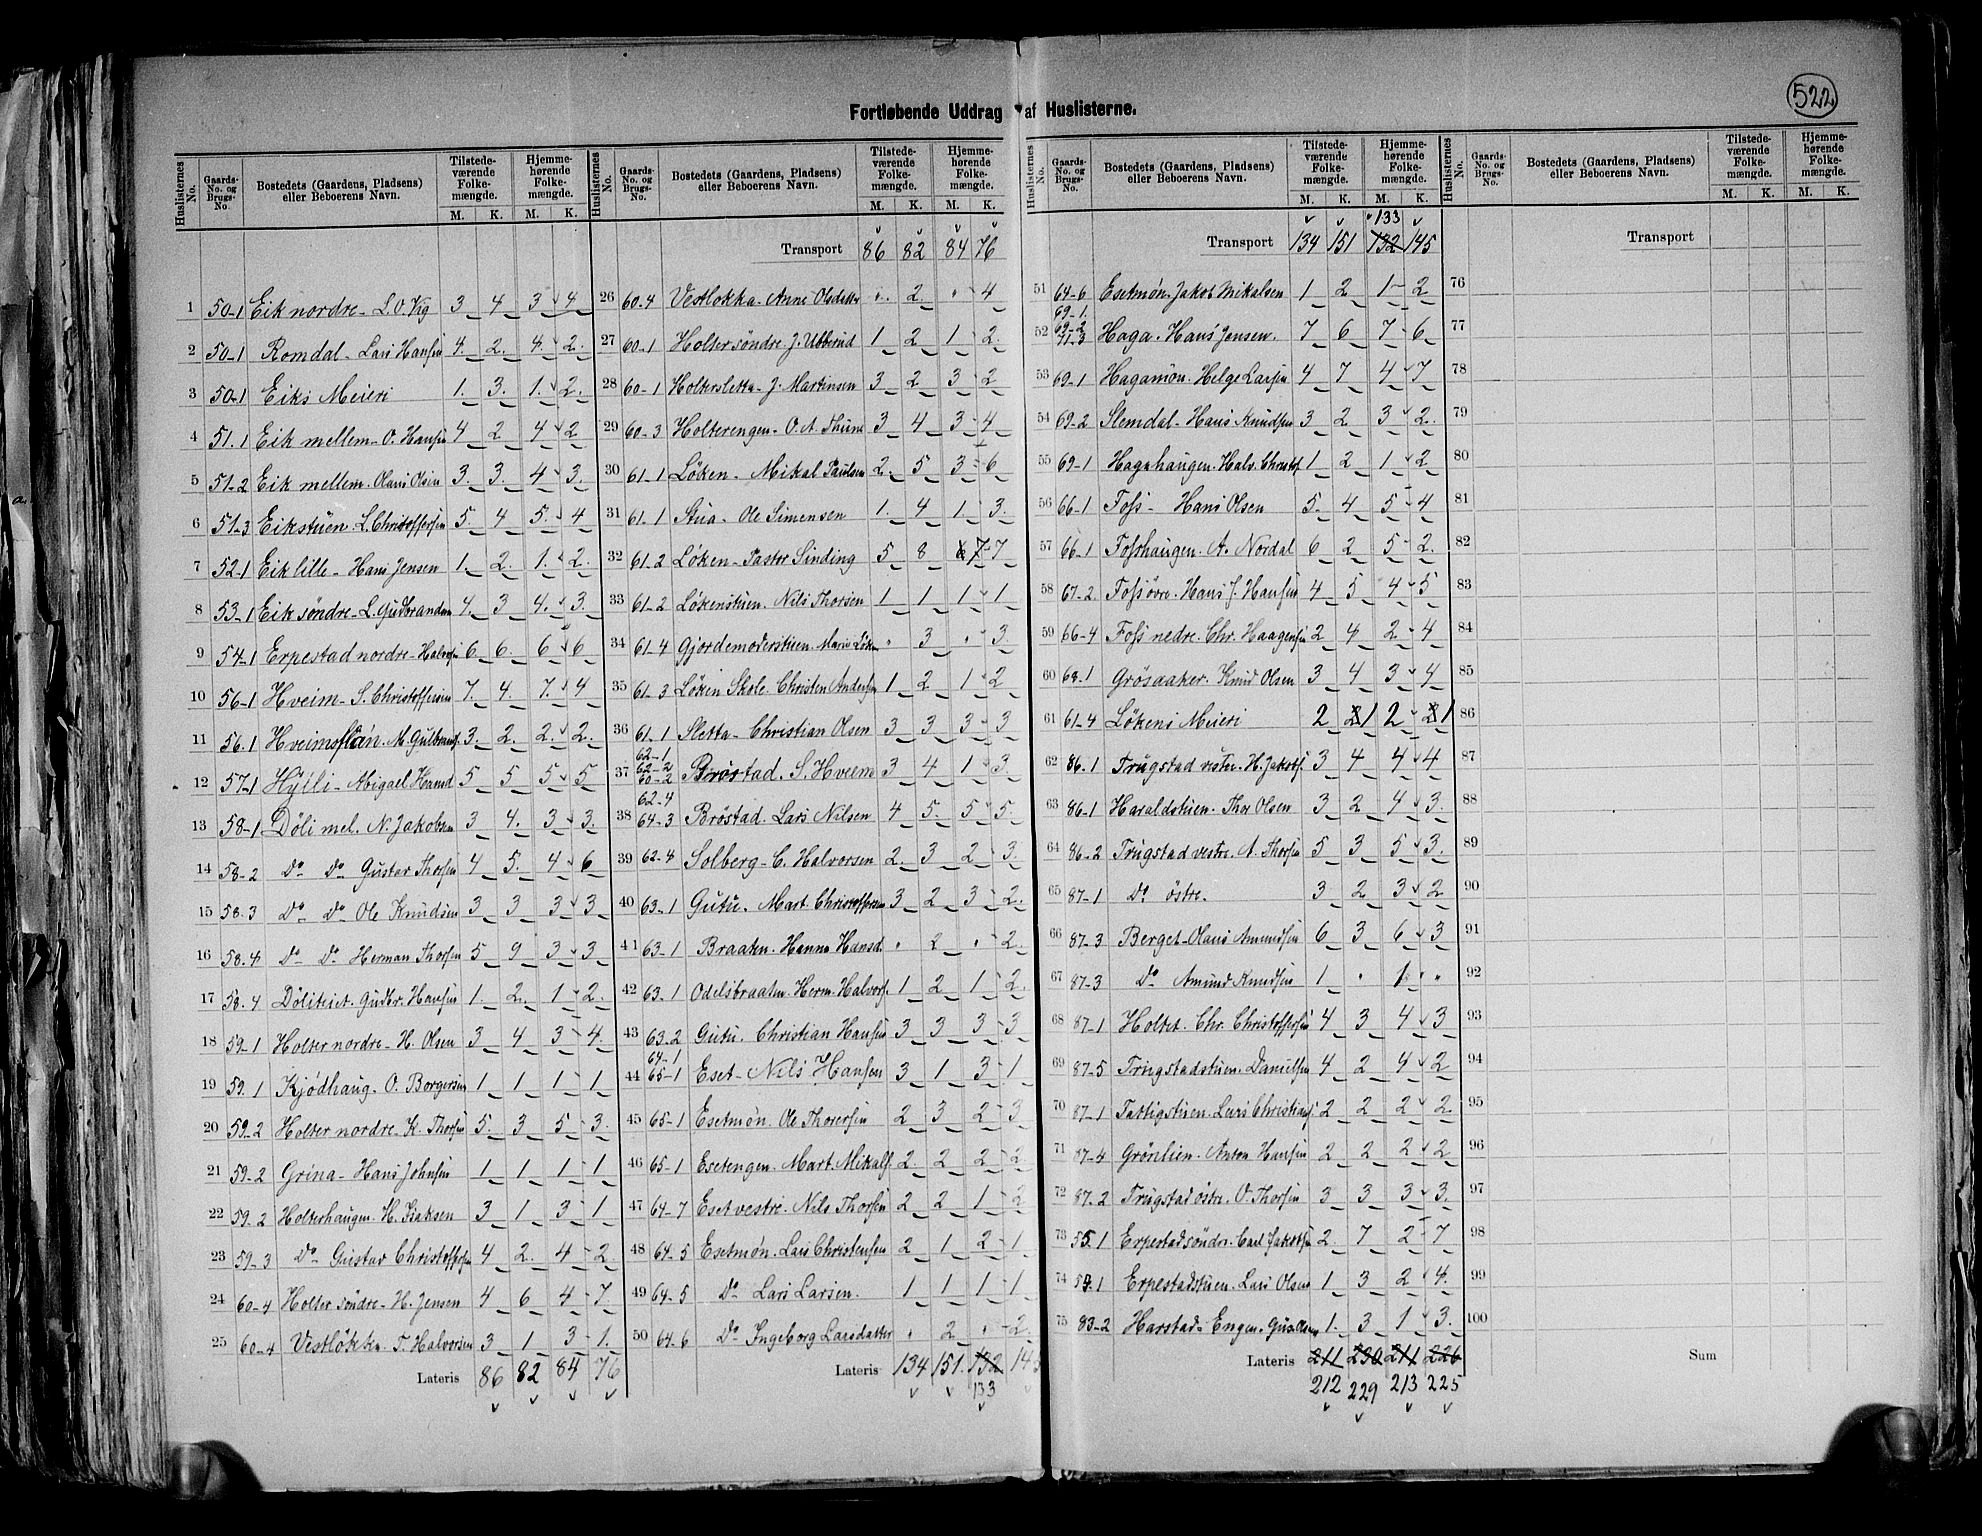 522
Fortløbende Uddrag af Huslisterne.
Huslisternes No. Gaards-No. og Brugs-No. Bostedets (Gaardens, Pladsens) eller Beboerens Navn. Tilstedeværende Folkemængde. M. K. Hjemmehørende Folkemængde. M. K.
1 50-1 Eik nordre - L. O. Vig 3 4 3 4
2 50-1 Romdal - Lars Hansen 4 2 4 2
3 50-1 Eiks Meieri 1 3 1 2
4 51.1 Eik mellem - O. Hansen 4 2 4 2
5 51-2 Eik mellem. Olaus Olsen 3 3 4 3
6 51-3 Eikstuen - L. Christoffersen 5 4 5 4
7 52-1 Eik lille - Hans Jensen 1 2 1 2
8 53-1 Eik søndre - L. Gudbrandsen 4 3 4 3
9 54-1 Erpestad nordre - Halvorsen 6 6 6 6
10 56-1 Hveim - S. Christoffersen 7 4 7 4
11 56.1 Hveimsflan. M. Gulbrands. 3 2 2 2
12 57-1 Hylli - Abigael Hansd 5 5 5 5
13 58-1 Döli mel. N. Jakobsen 3 4 3 3
14 58-2 Do Do Gustav Thorsen 4 5 4 6
15 58.3 Do Do Ole Knudsen 3 3 3 3
16 58.4 Do Do Herman Thorsen 5 9 3 3
17 58.4 Döliteiet. Gudbr. Hansen 1 2 1 2
18 59-1 Holter nordre - H. Olsen 3 4 3 4
19 59.1 Kjödhaug - O. Borgersen 1 1 1 1
20 59-2 Holter nordre. K. Thorsen 5 3 5 3
21 59-2 Grina - Hans Johnsen 1 1 1 1
22 59.2 Holterhaugen. H. Isaksen 3 1 3 1
23 59-3 Do Gustav Christoffersen 4 2 4 2
24 60-4 Holter söndre - H. Jensen 4 6 4 7
25 60-4 Vestlökka. T. Halvorsen 3 1 3 1
Lateris 86 82 84 76
Huslisternes No. Gaards-No. og Brugs-No. Bostedets (Gaardens, Pladsens) eller Beboerens Navn. Tilstedeværende Folkemængde. M. K. Hjemmehørende Folkemængde. M. K.
Transport 86 82 84 76
26 60-4 Vestlökka - Anne Olsdatter " 2 " 4
27 60-1 Holter söndre. J. Ubberud 1 2 1 2
28 60-1 Holtersletta - J. Martinsen 3 2 3 2
29 60-3 Holterengen - O. A. Thune 3 4 3 4
30 61-1 Löken - Mikal Paulsen 2 5 3 6
31 61.1 Stua - Ole Simensen 1 4 1 3
32 61.2 Löken - Pastor Sinding 5 8 7 7
33 61-2 Lökenstuen. Nils Thorsen 1 1 1 1
34 61-4 Gjordemoderstuen. Marie Löken " 3 " 3
35 61.3 Löken Skole. Christen Andersen 1 2 1 2
36 61.1 Sletta - Christian Olsen 3 3 3 3
37 62-1 62-2 60-2 Bröstad. S. Hveem 3 4 1 3
38 62-4 64-3 Bröstad. Lars Nilsen 4 5 5 5
39 62-8 Solberg - C. Halvorsen 2 3 2 3
40 63-1 Gutu. Mart. Christoffersen 3 2 3 2
41 63-1 Braaten. Hanna Hansd. " 2 " 2
42 63-1 Odelsbraaten. Herm. Halvors. 1 2 1 2
43 63-2 Gutu. Christian Hansen 3 3 3 3
44 64-1 65-1 Eset - Nils Hansen 3 1 3 1
45 65-1 Esetmön. Ole Thorersen 2 3 2 3
46 65-1 Esetengen. Mart. Mikals. 2 2 2 2
47 64-7 Eset vestre. Nils Thorsen 2 2 1 2
48 64-5 Esetmön. Lars Christensen 2 1 2 1
49 64-5 Do Lars Larsen. 1 1 1 1
50 64.6 Do Ingeborg Larsdatter " 2 " 2
Lateris 134 151 132 145
133
Huslisternes No. Gaards-No. og Brugs-No. Bostedets (Gaardens, Pladsens) eller Beboerens Navn. Tilstedeværende Folkemængde. M. K. Hjemmehørende Folkemængde. M. K.
133
Transport 134 151 132 145
51 64-6 Esetmön. Jakob Mikalsen 1 2 1 2
52 69-1. 69-2 71-3 Haga. Hans Jensen. 7 6 7 6
53 69-1 Hagamön. Helge Larsen 4 7 4 7
54 69-2 Slemdal - Hans Knudsen 3 2 3 2
55 69-1 Hagahaugen. Halv. Christof. 1 2 1 2
56 66-1 Foss - Hans Olsen 5 4 5 4
57 66-1 Fosshaugen. A. Nordal 6 2 5 2
58 67-2. Foss övre. Hans J. Hansen 4 5 4 5
59 66-4 Foss nedre. Chr. Haagensen 2 4 2 4
60 68-1 Grösaaker. Knud Olsen 3 4 3 4
61 61-4 Lökens Meieri 2 1 2 1
62 86.1 Trugstad vestre. H. Jakobs. 3 4 4 4
63 86-1 Haraldstuen. Thor Olsen 3 2 4 3
64 86-2 Trugstad vestre. A. Thorsen 5 3 5 3
65 87-1 Do östre. 3 2 3 2
66 87-3 Berget - Olaus Amundsen 6 3 6 3
67 87-3 Do Amund Knudsen 1 " 1 "
68 87-1 Holtet. Chr. Christoffersen 4 3 4 3
69 87-5 Trugstadstuen. Danielsen 4 2 4 2
70 87-1 Fattigstuen. Lars Christians. 2 2 2 2
71 87-4 Grönlien. Anton Hansen 2 2 2 2
72 87-2 Trugstad östre. O. Thorsen 3 3 3 3
73 55.1 Erpestad söndre. Carl Jakobsen 2 7 2 7
74 54.1 Erpestadstuen. Lars Olsen 1 3 2 4
75 83-2 Harstad. Engen. Gus. Olsen 1 3 1 3
Lateris 211 230 211 226
212 229 213 225
Huslisternes No. Gaards-No. og Brugs-No. Bostedets (Gaardens, Pladsens) eller Beboerens Navn. Tilstedeværende Folkemængde. M. K. Hjemmehørende Folkemængde. M. K.
Transport
76
77
78
79
80
81
82
83
84
85
86
87
88
89
90
91
92
93
94
95
96
97
98
99
100
Sum